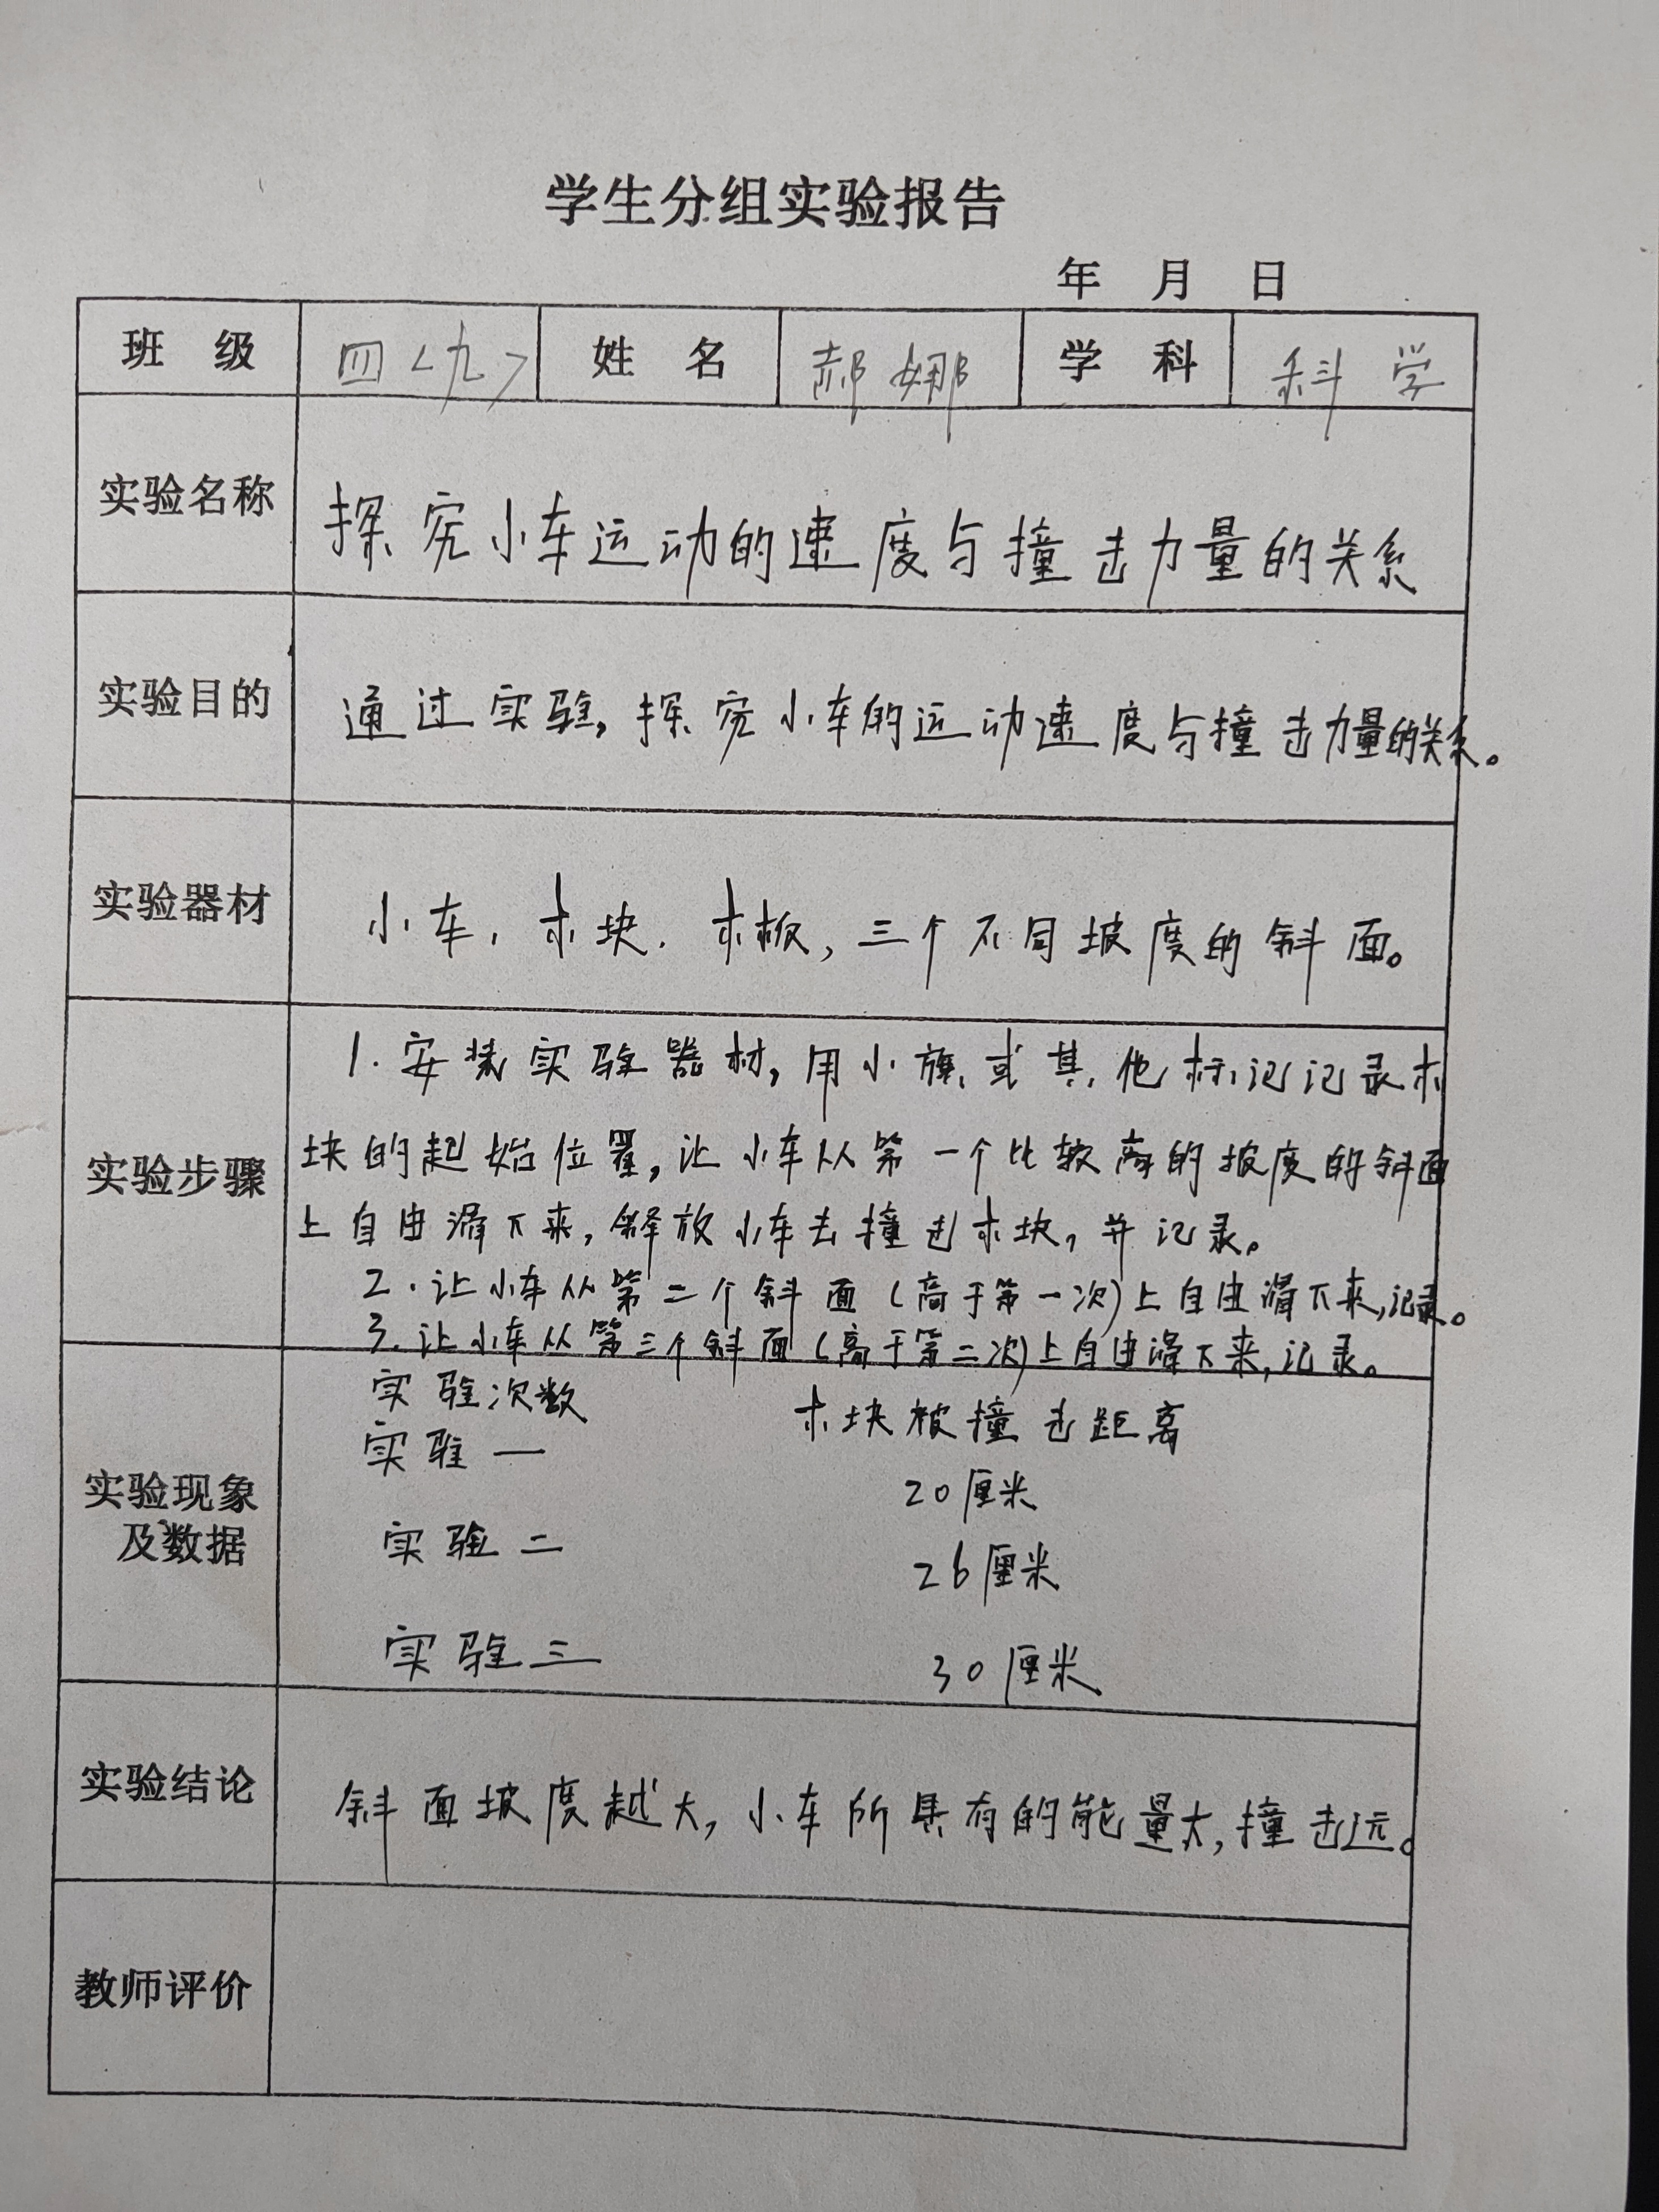 学生分组实验报告
年 月 日
班 级 四<九> 姓 名 郝娜 学 科 科学
实验名称 探究小车运动的速度与撞击力量的关系
实验目的 通过实验,探究小车的运动速度与撞击力量的关系。
实验器材 小车,木块.木板,三个不同坡度的斜面。
实验步骤
1.安装实验器材,用小旗或其他标记记录木
块的起始位置,让小车从第一个比较高的坡度的斜面
上自由滑下来,释放小车去撞击木块,并记录。
2.让小车从第二个斜面(高于第一次)上自由滑下来,记录。
3.让小车从第三个斜面(高于第二次)上自由滑下来,记录。
实验现象
及数据
实验次数 木块被撞击距离
实验一 20厘米
实验二 26厘米
实验三 30厘米
实验结论 斜面坡度越大,小车所具有的能量大,撞击远。
教师评价